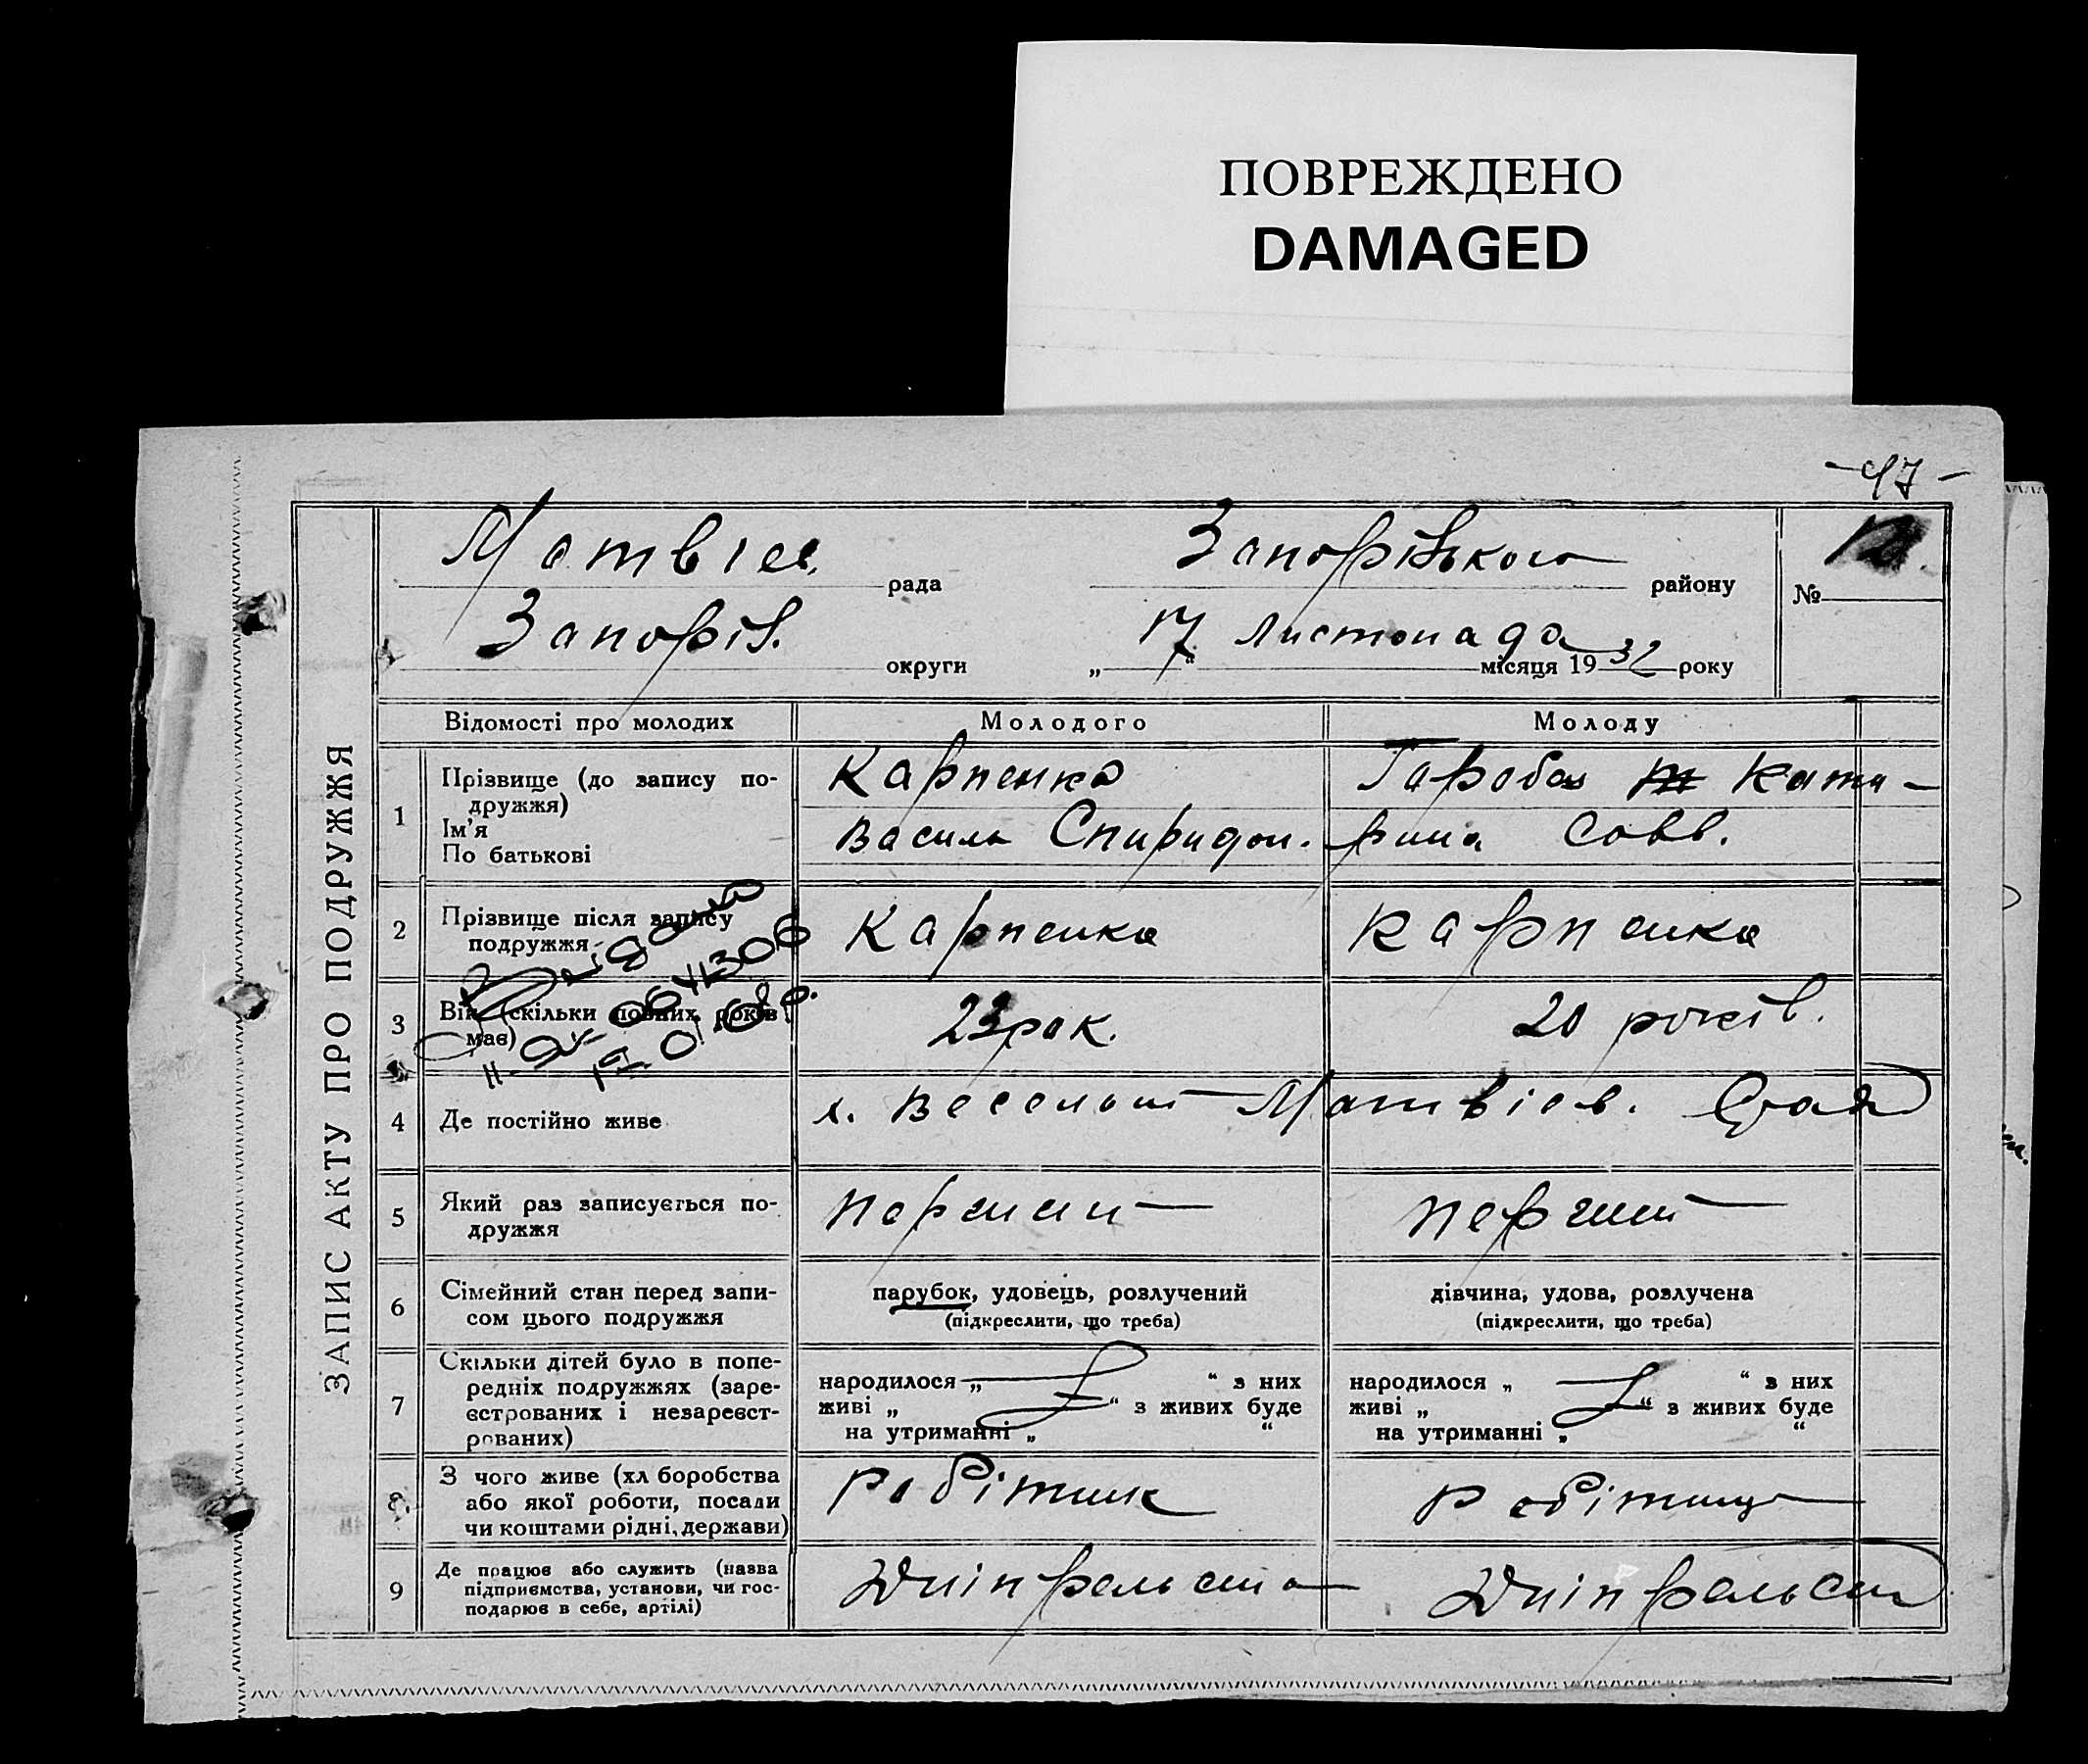 ПОВРЕЖДЕНО
DAMAGED
-47-
ЗАПИС АКТУ ПРО ПОДРУЖЖЯ
Матвіев. рада Запорізького району №
Запоріз. округи „17“ Листопада місяця 1932 року
Відомості про молодих Молодого Молоду
1 Прізвище (до запису по-
дружжя)
Ім'я
По батькові
Карпенко
Василь Спиридон.
Гаробах Кате-
рина Савв.
2 Прізвище після запису
подружжя
Карпенко Карпенко
3 Вік (скільки повних років
має)
23 рок. 20 років.
4 Де постійно живе
х. Веселий Матвіев.
5 Який раз записується по-
дружжя
перший перший
6 Сімейний стан перед запи-
сом цього подружжя
парубок, удовець, розлучений
(підкреслити, що треба)
дівчина, удова, розлучена
(підкреслити, що треба)
7 Скільки дітей було в попе-
редніх подружжях (заре-
єстрованих і незареєст-
рованих)
народилося „ “ з них
живі „ “ з живих буде
на утриманні „ “
народилося „ “ з них
живі „ “ з живих буде
на утриманні „ “
8 З чого живе (хліборобства
або якої роботи, посади
чи коштами рідні, держави)
робітник робітниця
9 Де працює або служить (назва
підприємства, установи, чи гос-
подарює в себе, артілі)